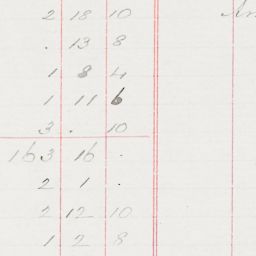 2 18 10 An
. 13 8
1 8 4
1 11 6
3 . 10
163 16 .
2 1 .
2 12 10
1 2 8